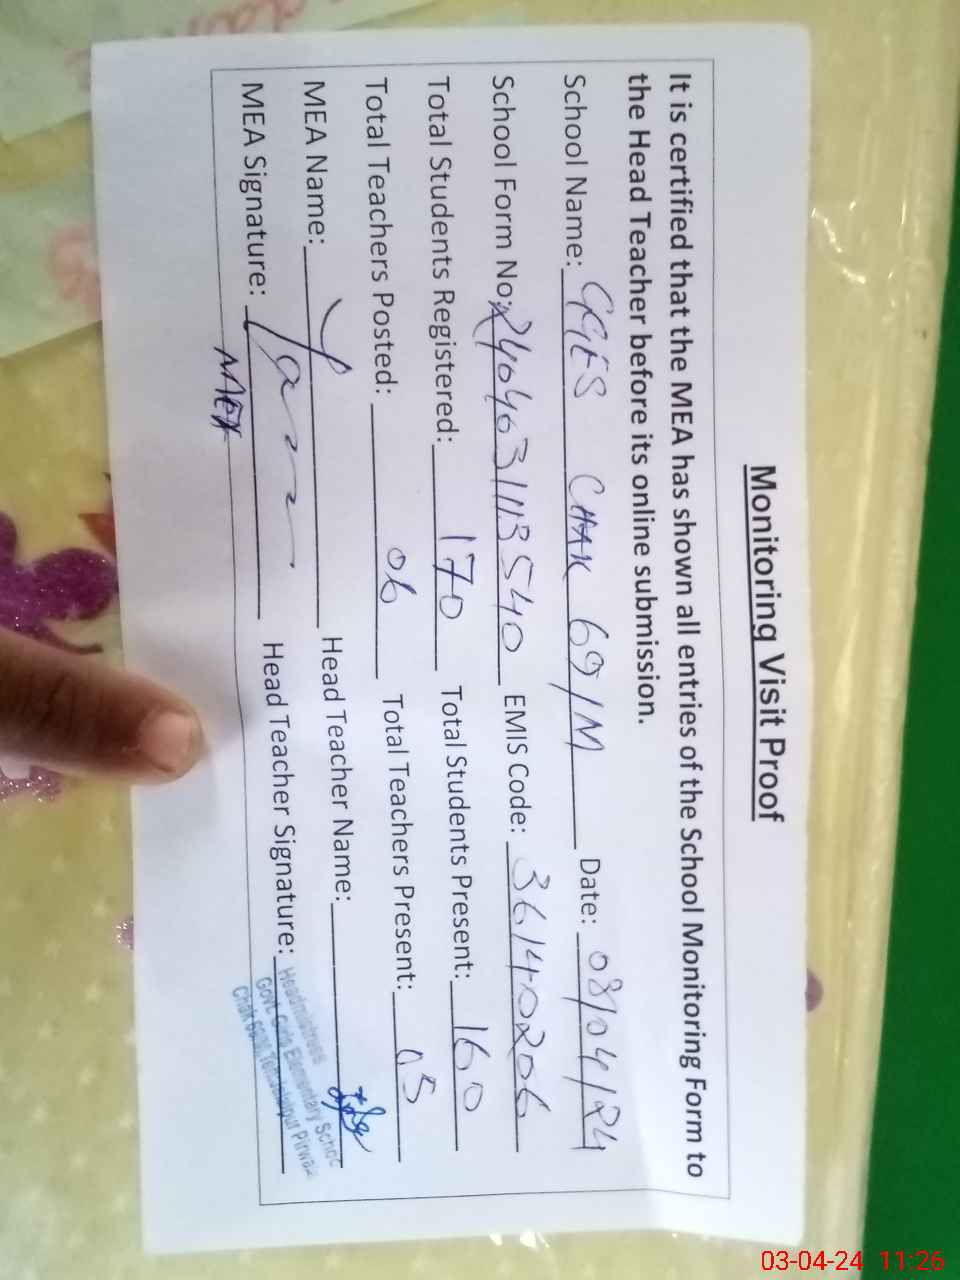 Monitoring Visit Proof
It is certified that the MEA has shown all entries of the School Monitoring Form to
the Head Teacher before its online submission.
School Name: GGES CHAK 69/M Date: 08/04/24
School Form No: 2404631113540 EMIS Code: 36140206
Total Students Registered: 170 Total Students Present: 160
Total Teachers Posted: 06 Total Teachers Present: 05
MEA Name: Head Teacher Name:
MEA Signature: Head Teacher Signature:
Headmistress
Govt. Girls Elementary School
Chak 69/M
03-04-24 11:26